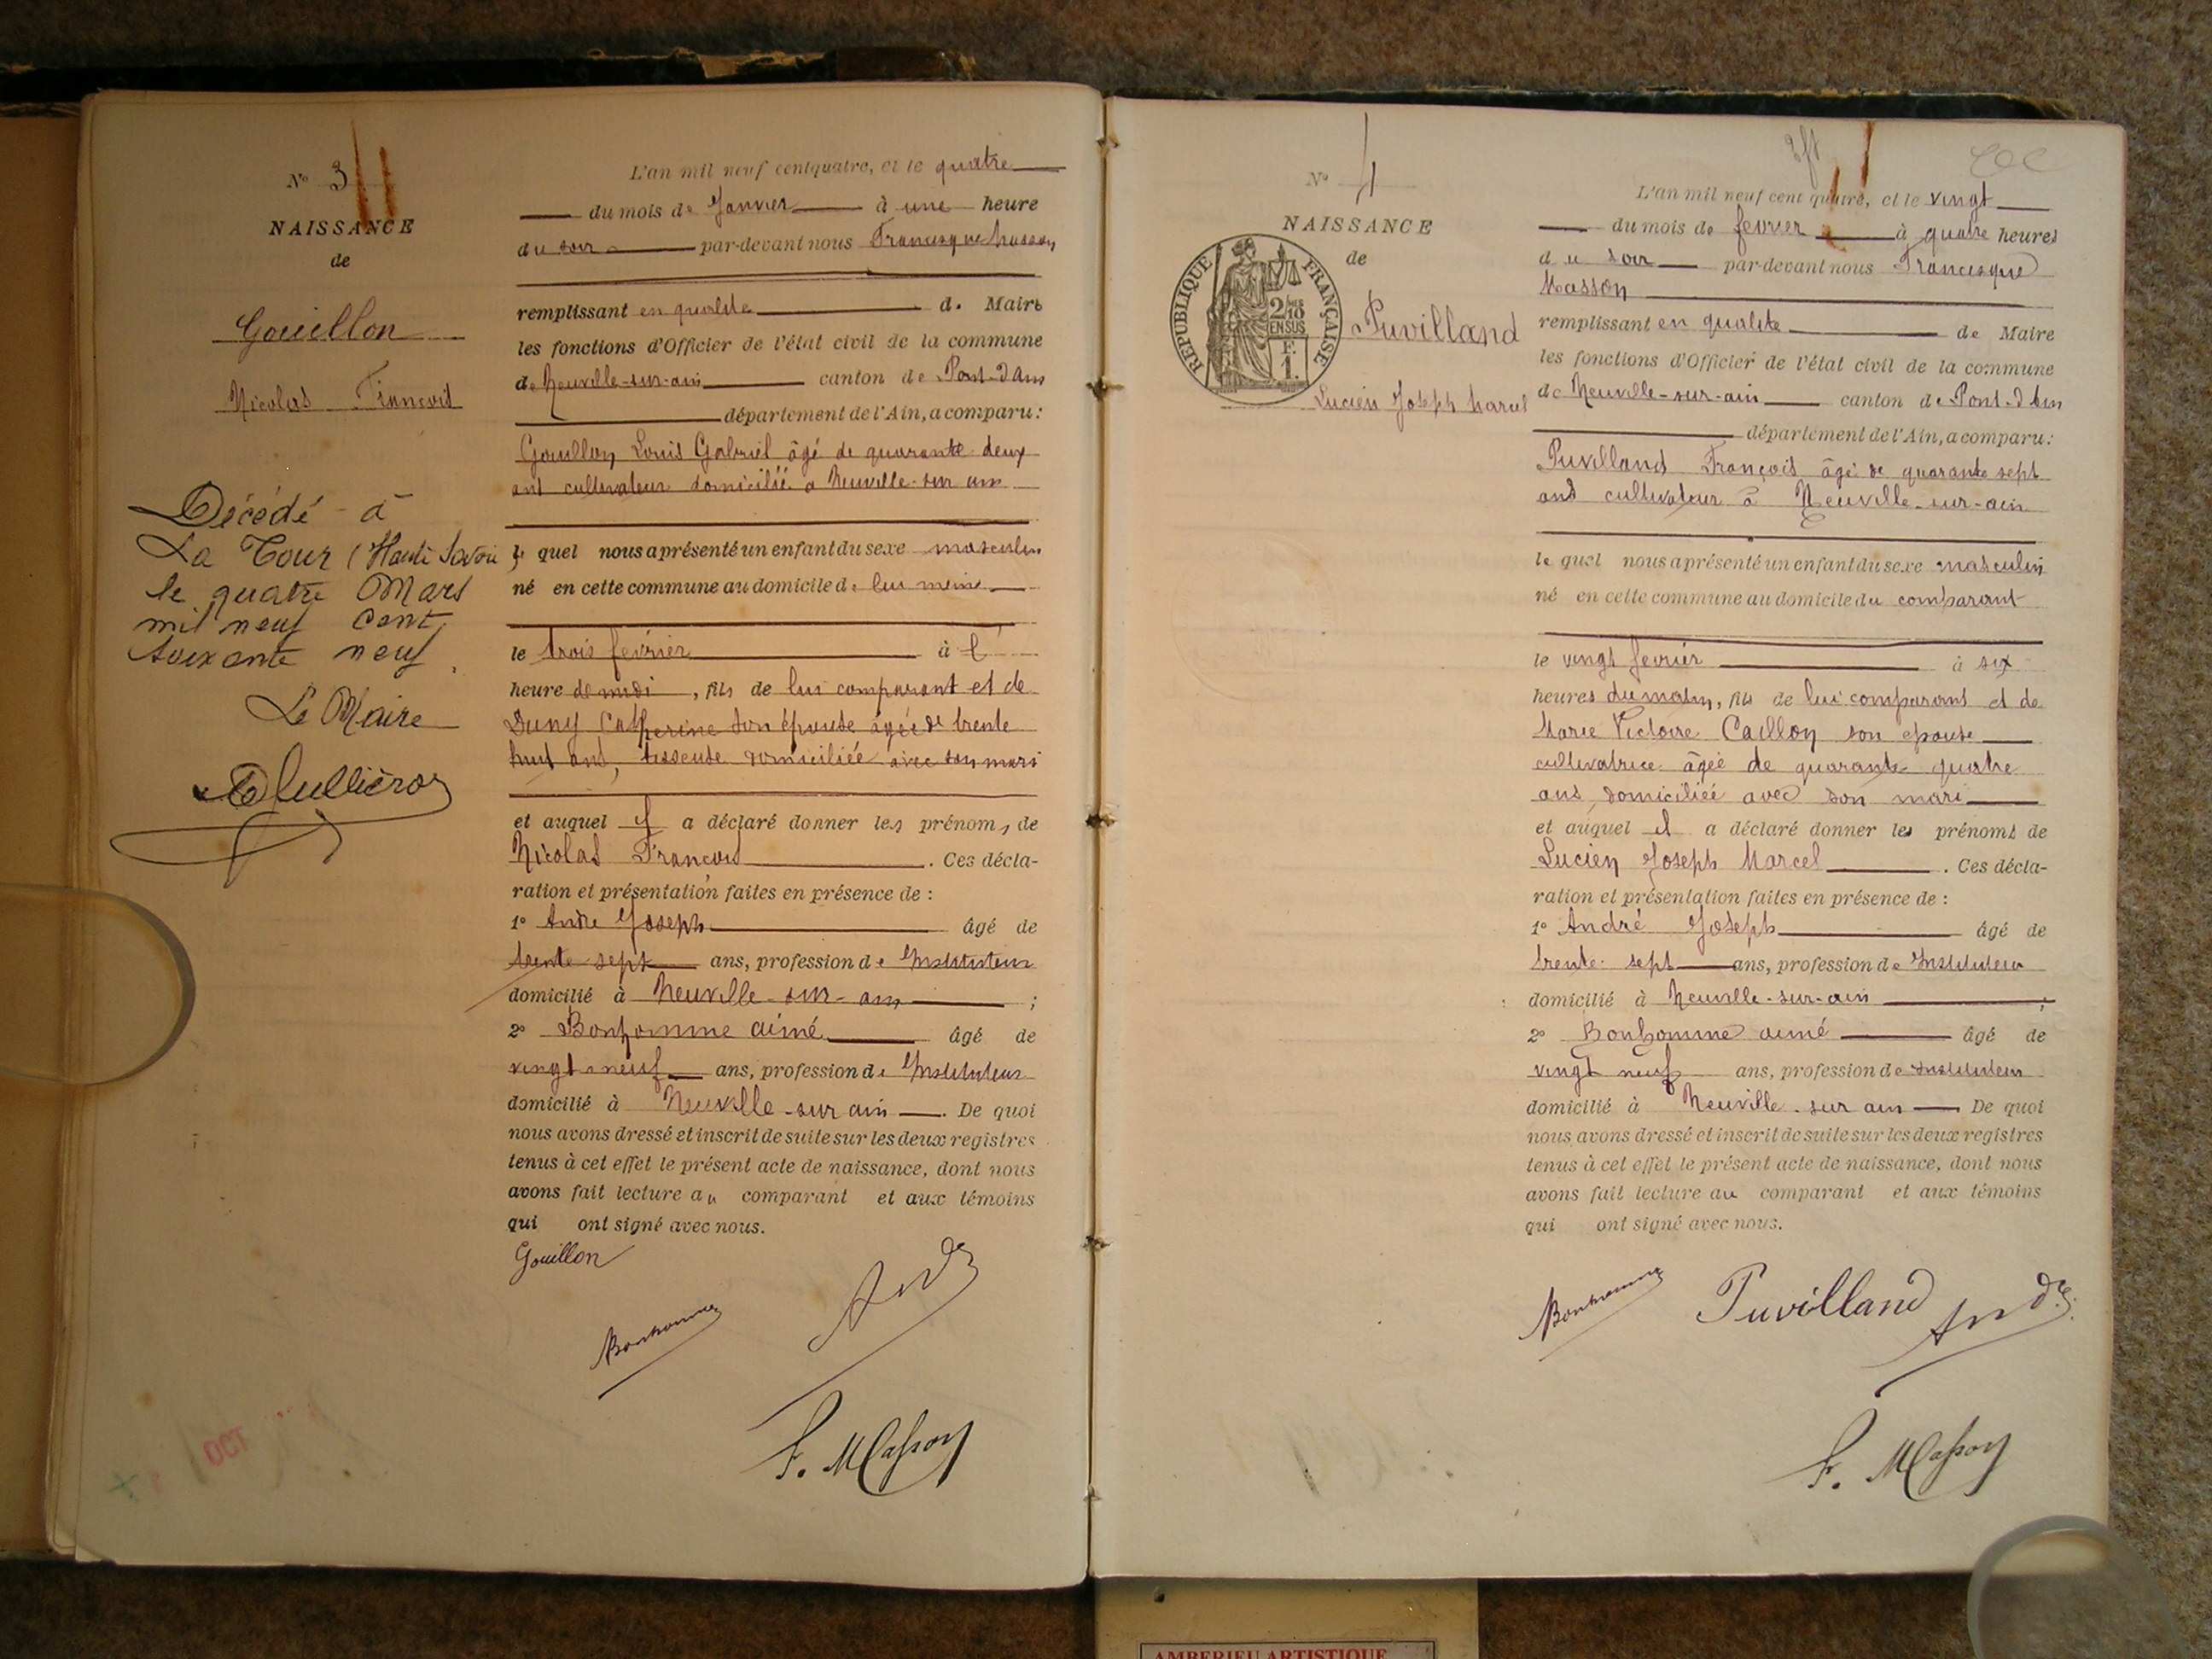 N° 3
NAISSANCE
de
Gouillon
Nicolas François
Décédé à
La Tour (Haute Savoie)
le quatre Mars
mil neuf cent
soixante neuf.
Le Maire
L'an mil neuf cent quatre, et le quatre
du mois de Janvier à une heure
du soir par-devant nous Francisque Masson
remplissant en qualité de Maire
les fonctions d'Officier de l'état civil de la commune
de Neuville-sur-ain canton de Pont-d'Ain
département de l'Ain, a comparu :
Gouillon Louis Gabriel âgé de quarante deux
ans cultivateur domicilié à Neuville-sur ain
le quel nous a présenté un enfant du sexe masculin
né en cette commune au domicile de lui meme
le trois février à l'
heure de midi, fils de lui comparant et de
Duny Catherine son épouse âgée de trente
huit ans, tisseuse domiciliée avec son mari
et auquel il a déclaré donner les prénoms de
Nicolas François. Ces décla-
ration et présentation faites en présence de :
1° André Joseph âgé de
trente sept ans, profession de Instituteur
domicilié à Neuville-sur-ain ;
2° Bonhomme aimé âgé de
vingt neuf ans, profession de Instituteur
domicilié à Neuville-sur ain. De quoi
nous avons dressé et inscrit de suite sur les deux registres
tenus à cet effet le présent acte de naissance, dont nous
avons fait lecture au comparant et aux témoins
qui ont signé avec nous.
Gouillon
André
Bonhomme
F. Masson
OCT
N° 4
NAISSANCE
de
RÉPUBLIQUE FRANÇAISE
2/10 EN SUS
F. 1.
Puvilland
Lucien Joseph Marcel
L'an mil neuf cent quatre, et le vingt
du mois de fevrier à quatre heures
du soir par-devant nous Francisque
Masson
remplissant en qualite de Maire
les fonctions d'Officier de l'état civil de la commune
de Neuville-sur-ain canton de Pont-d'Ain
département de l'Ain, a comparu :
Puvilland François âgé de quarante sept
ans cultivateur à Neuville-sur-ain
le quel nous a présenté un enfant du sexe masculin
né en cette commune au domicile du comparant
le vingt fevrier à six
heures du matin, fils de lui comparant et de
Marie Victoire Caillon son epouse
cultivatrice âgée de quarante quatre
ans, domiciliée avec son mari
et auquel il a déclaré donner les prénoms de
Lucien Joseph Marcel. Ces décla-
ration et présentation faites en présence de :
1° André Joseph âgé de
trente sept ans, profession de Instituteur
domicilié à Neuville-sur-ain ;
2° Bonhomme aimé âgé de
vingt neuf ans, profession de instituteur
domicilié à Neuville-sur ain De quoi
nous avons dressé et inscrit de suite sur les deux registres
tenus à cet effet le présent acte de naissance, dont nous
avons fait lecture au comparant et aux témoins
qui ont signé avec nous.
Bonhomme Puvilland André
F. Masson
AMBERIEU ARTISTIQUE